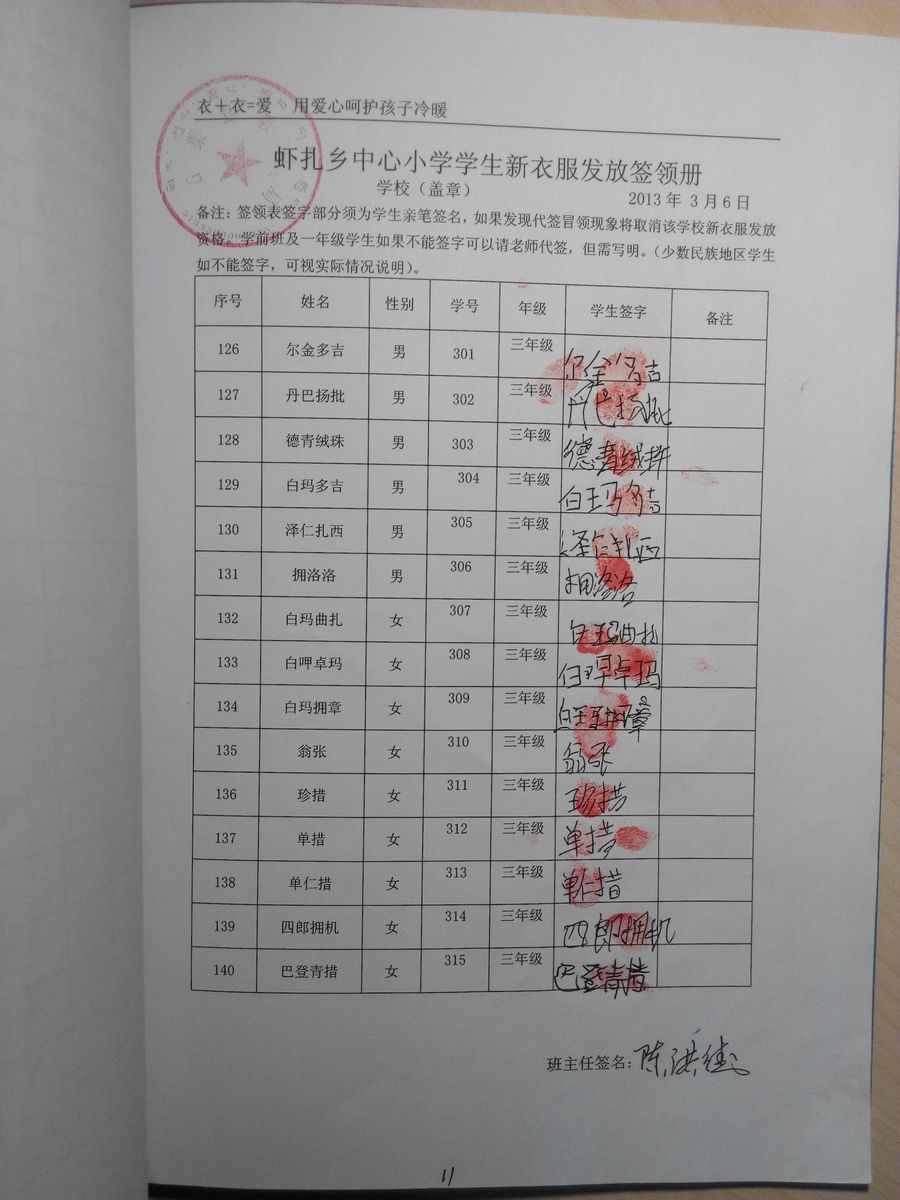 衣+衣=爱 用爱心呵护孩子冷暖
虾扎乡中心小学学生新衣服发放签领册
学校（盖章） 2013 年 3 月 6 日
备注：签领表签字部分须为学生亲笔签名，如果发现代签冒领现象将取消该学校新衣服发放
资格。学前班及一年级学生如果不能签字可以请老师代签，但需写明。（少数民族地区学生
如不能签字，可视实际情况说明）。
序号 姓名 性别 学号 年级 学生签字 备注
126 尔金多吉 男 301 三年级 尔金多吉
127 丹巴扬批 男 302 三年级 丹巴扬批
128 德青绒珠 男 303 三年级 德青绒珠
129 白玛多吉 男 304 三年级 白玛多吉
130 泽仁扎西 男 305 三年级 泽仁扎西
131 拥洛洛 男 306 三年级 拥洛洛
132 白玛曲扎 女 307 三年级 白玛曲扎
133 白呷卓玛 女 308 三年级 白呷卓玛
134 白玛拥章 女 309 三年级 白玛拥章
135 翁张 女 310 三年级 翁张
136 珍措 女 311 三年级 珍措
137 单措 女 312 三年级 单措
138 单仁措 女 313 三年级 单仁措
139 四郎拥机 女 314 三年级 四郎拥机
140 巴登青措 女 315 三年级 巴登青措
班主任签名：陈
11